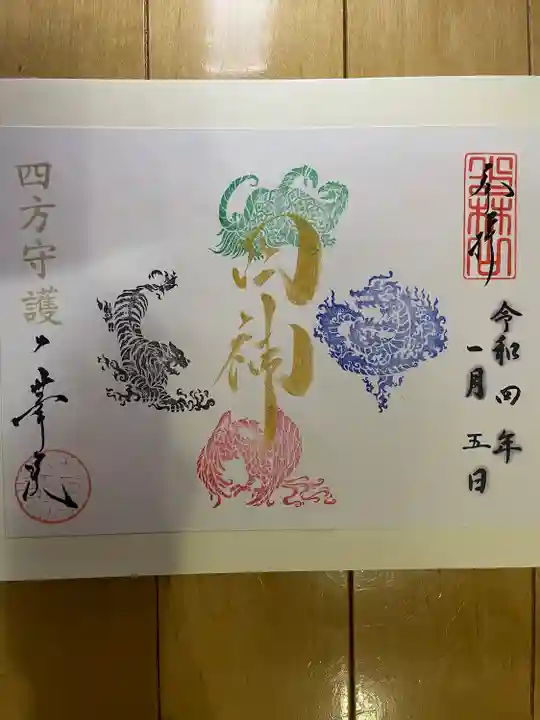 奉拝
令和四年
一月五日
四神
四方守護